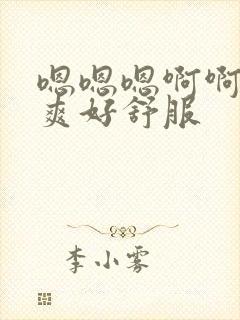 嗯嗯嗯啊啊
爽好舒服
李小雾